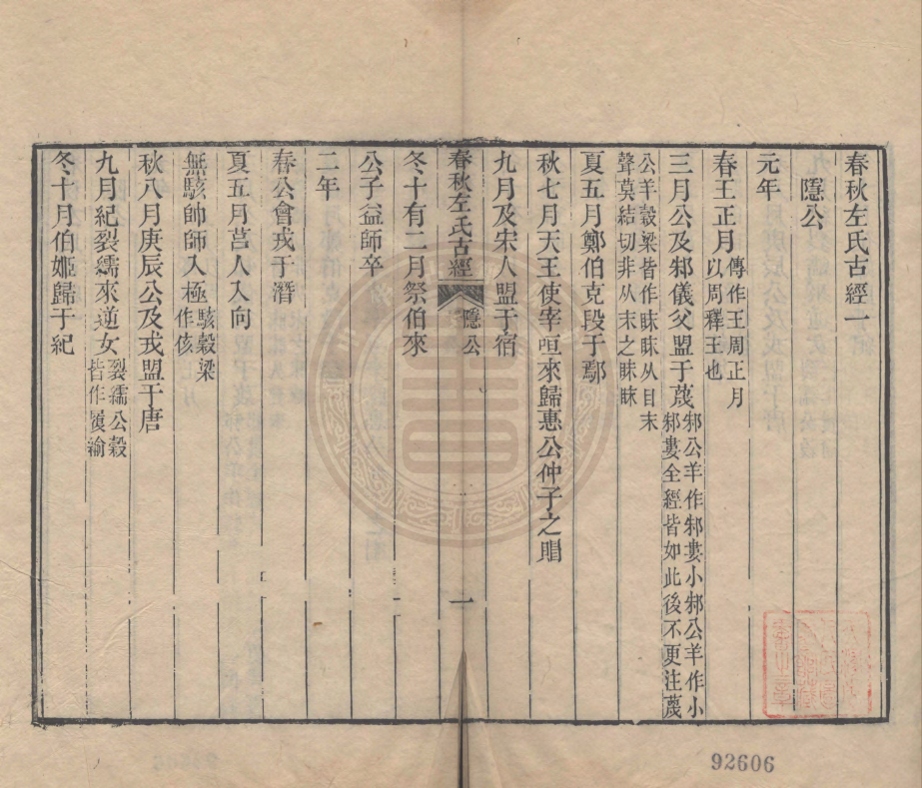 春秋左氏古經一
隱公
元年
春王正月傳作王周正月以周釋王也
三月公及邾儀父盟于蔑邾公羊作邾婁小邾公羊作小邾婁全經皆如此後不更注蔑
公羊穀梁皆作眛眛从目末聲莫結切非从末之眛眛
夏五月鄭伯克段于鄢
秋七月天王使宰咺來歸惠公仲子之賵
九月及宋人盟于宿
春秋左氏古經 隱公 一
冬十有二月祭伯來
公子益師卒
二年
春公會戎于潛
夏五月莒人入向
無駭帥師入極駭穀梁作侅
秋八月庚辰公及戎盟于唐
九月紀裂繻來逆女裂繻公穀皆作履緰
冬十月伯姬歸于紀
92606